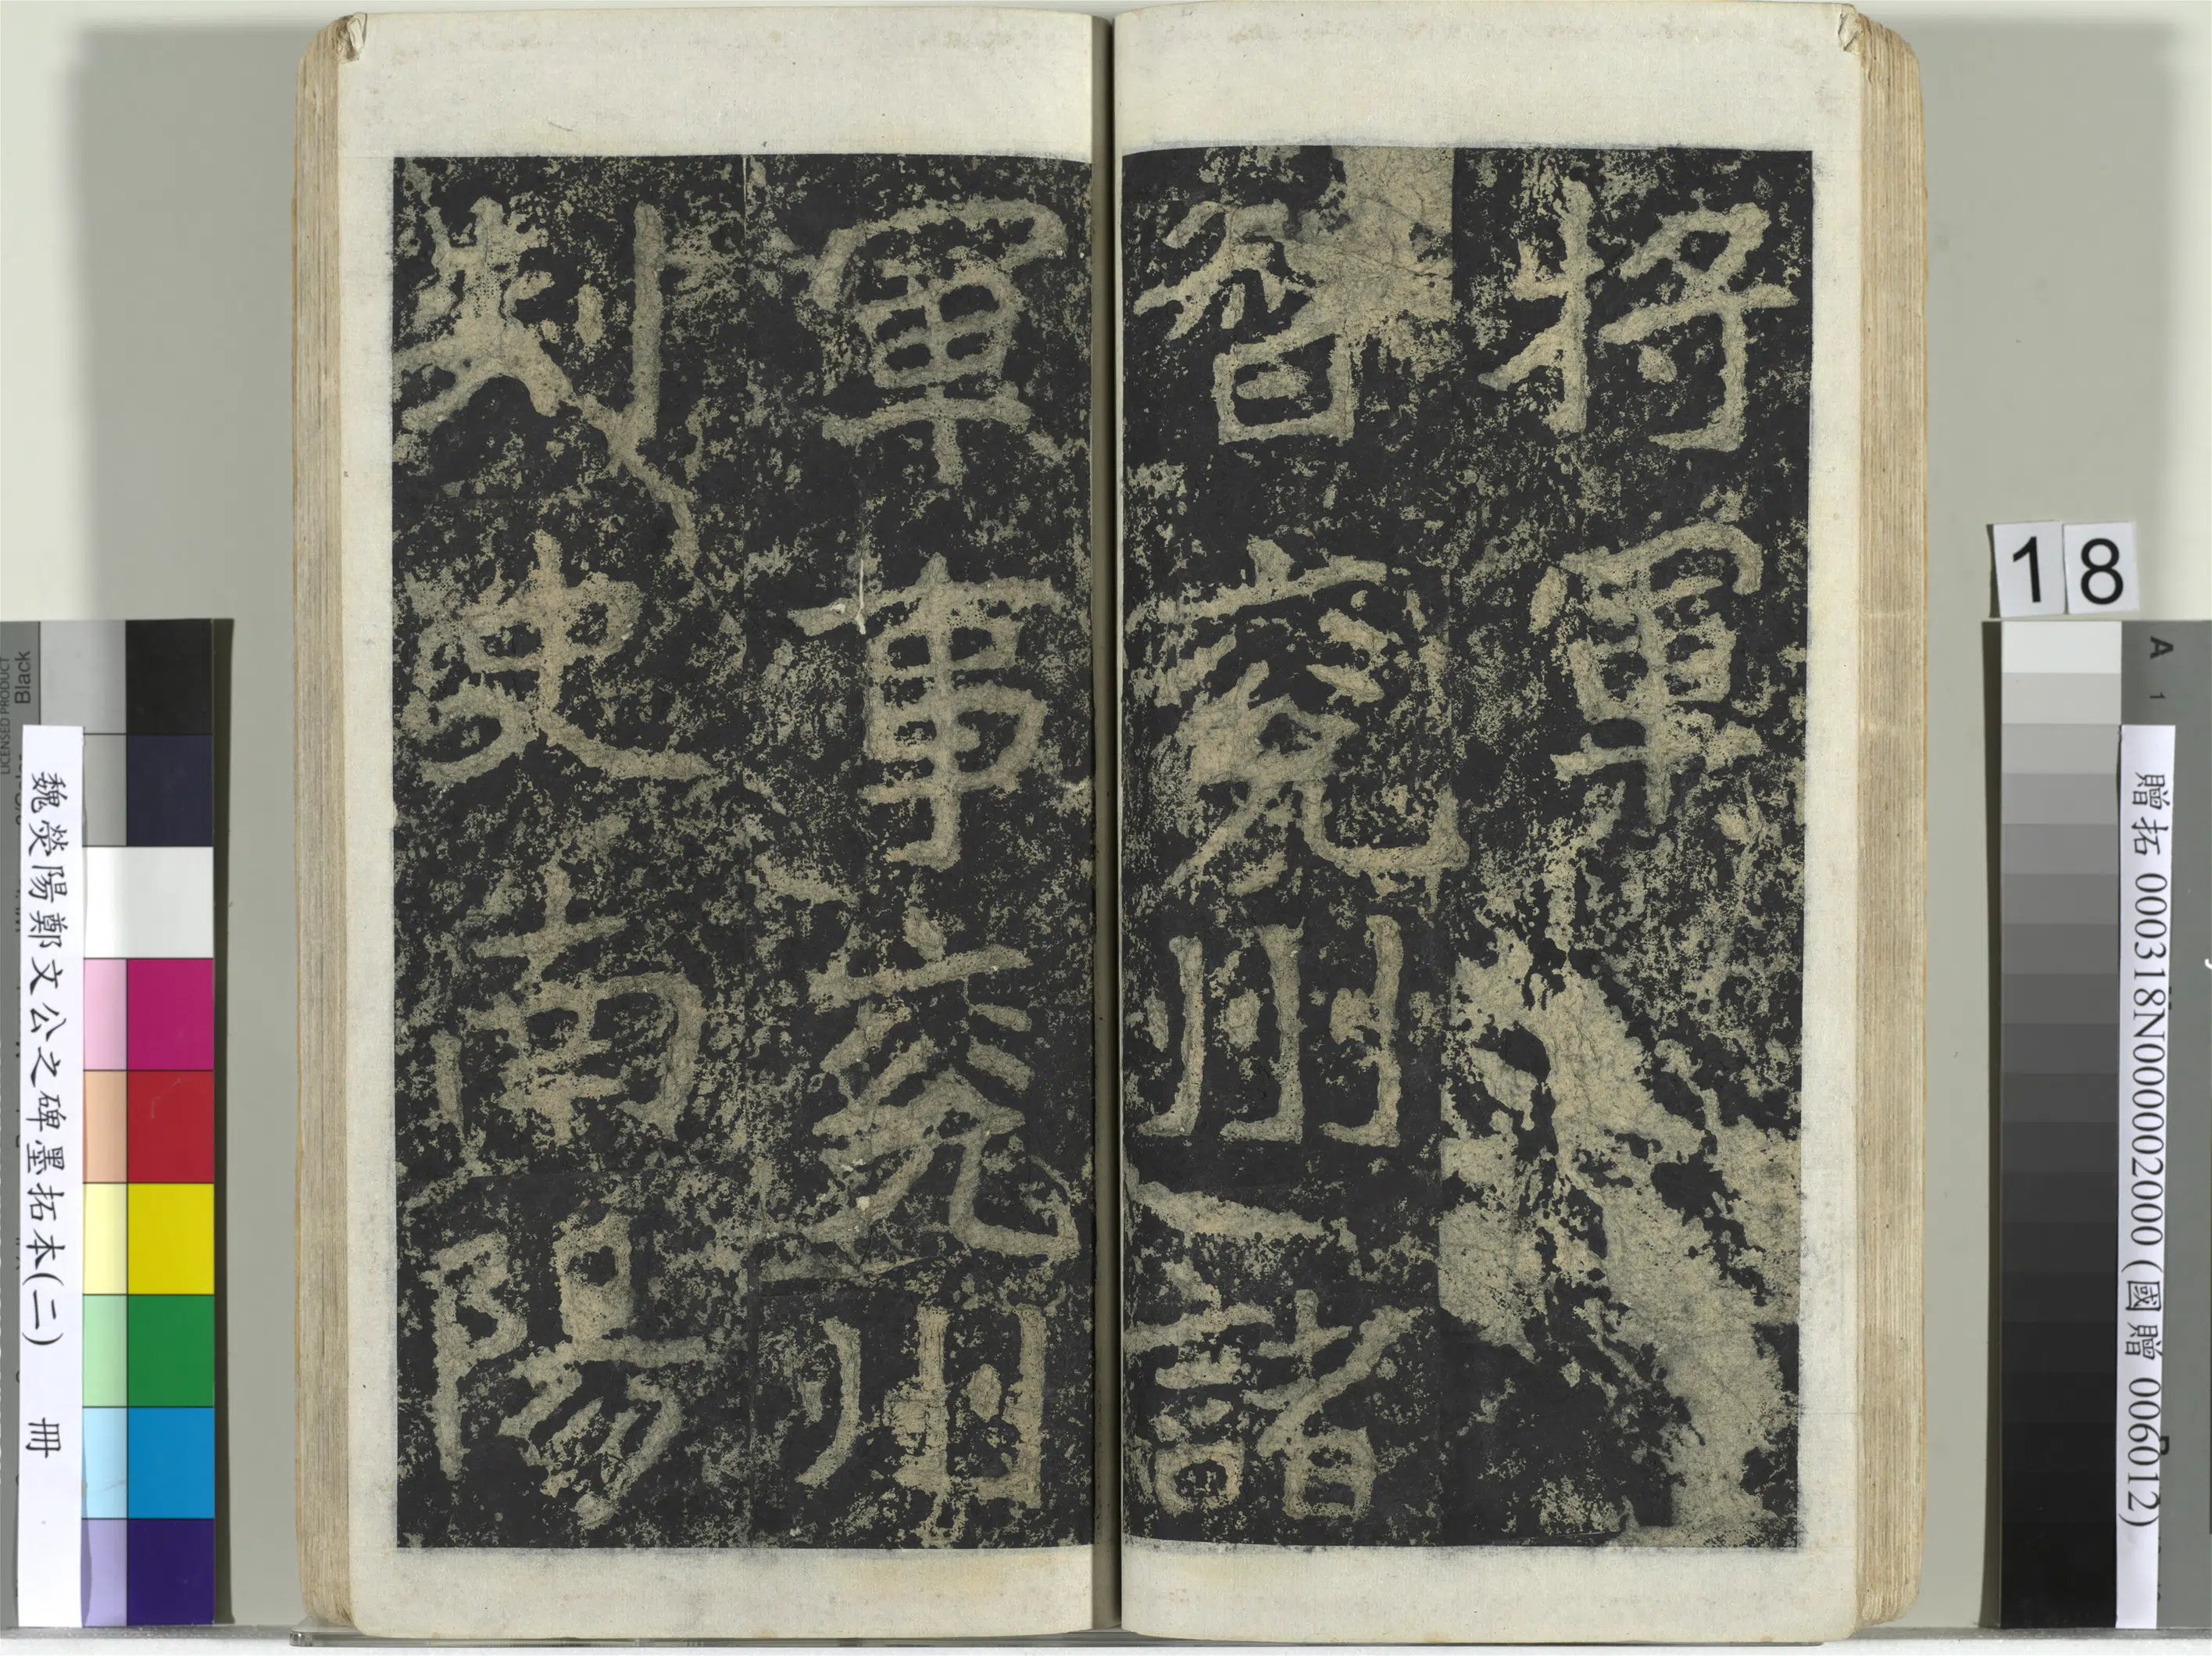 將軍
督兖州諸
軍事兖州
刺史南陽
18
贈拓 000318N000002000 (國贈 006012)
魏熒陽鄭文公之碑墨拓本(二) 冊
A 1
LICENSED PRODUCT
Black